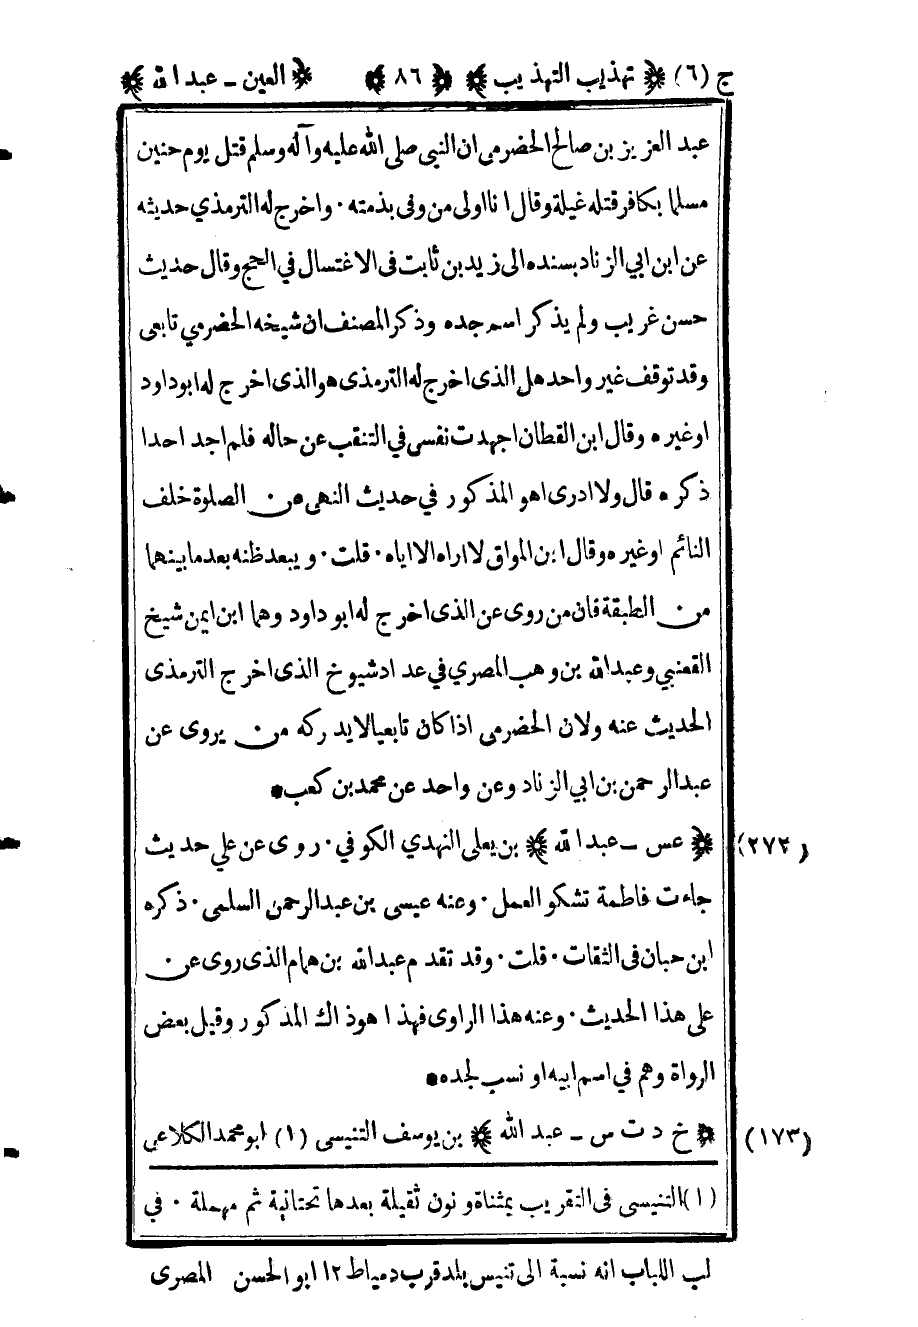 ج (٦) ﴿ تهذيب التهذيب ﴾ ﴿ ٨٦ ﴾ ﴿ العين ـ عبد الله ﴾
عبد العزيز بن صالح الحضرمى ان النبى صلى الله عليه وآله وسلم قتل يوم حنين
مسلما بكافر قتله غيلة وقال انا اولى من وفى بذمته · واخرج له الترمذي حديثه
عن ابن ابي الزناد بسنده الى زيد بن ثابت فى الاغتسال في الحج وقال حديث
حسن غريب ولم يذكر اسم جده وذكر المصنف ان شيخه الحضرمي تابعى
وقد توقف غير واحد هل الذى اخرج له الترمذى هو الذى اخرج له ابو داود
اوغيره وقال ابن القطان اجهدت نفسى في التنقب عن حاله فلم اجد احدا
ذكره قال ولا ادرى اهو المذكور في حديث النهى من الصلوة خلف
النائم اوغيره وقال ابن المواق لا اراه الا اياه · قلت · ويبعد ظنه بعد ما بينهما
من الطبقة فان من روى عن الذى اخرج له ابو داود وهما ابن ايمن شيخ
القعنبي وعبد الله بن وهب المصري في عداد شيوخ الذى اخرج الترمذى
الحديث عنه ولان الحضرمى اذا كان تابعيا لا يدركه من يروى عن
عبد الرحمن بن ابي الزناد وعن واحد عن محمد بن كعب •
(٢٧٢) ﴿ عس ـ عبد الله ﴾ بن يعلى النهدي الكوفي · روى عن علي حديث
جاءت فاطمة تشكو العمل · وعنه عيسى بن عبد الرحمن السلمى · ذكره
ابن حبان فى الثقات · قلت · وقد تقدم عبد الله بن همام الذى روى عن
على هذا الحديث · وعنه هذا الراوى فهذا هو ذاك المذكور وقيل بعض
الرواة وهم في اسم ابيه او نسب لجده •
(١٧٣) ﴿ خ د ت س ـ عبد الله ﴾ بن يوسف التنيسى (١) ابو محمد الكلاعى
(١) التنيسى فى التقريب بمثناة ونون ثقيلة بعدها تحتانية ثم مهملة · في
لب اللباب انه نسبة الى تنيس بلد قرب دمياط ١٢ ابو الحسن المصرى